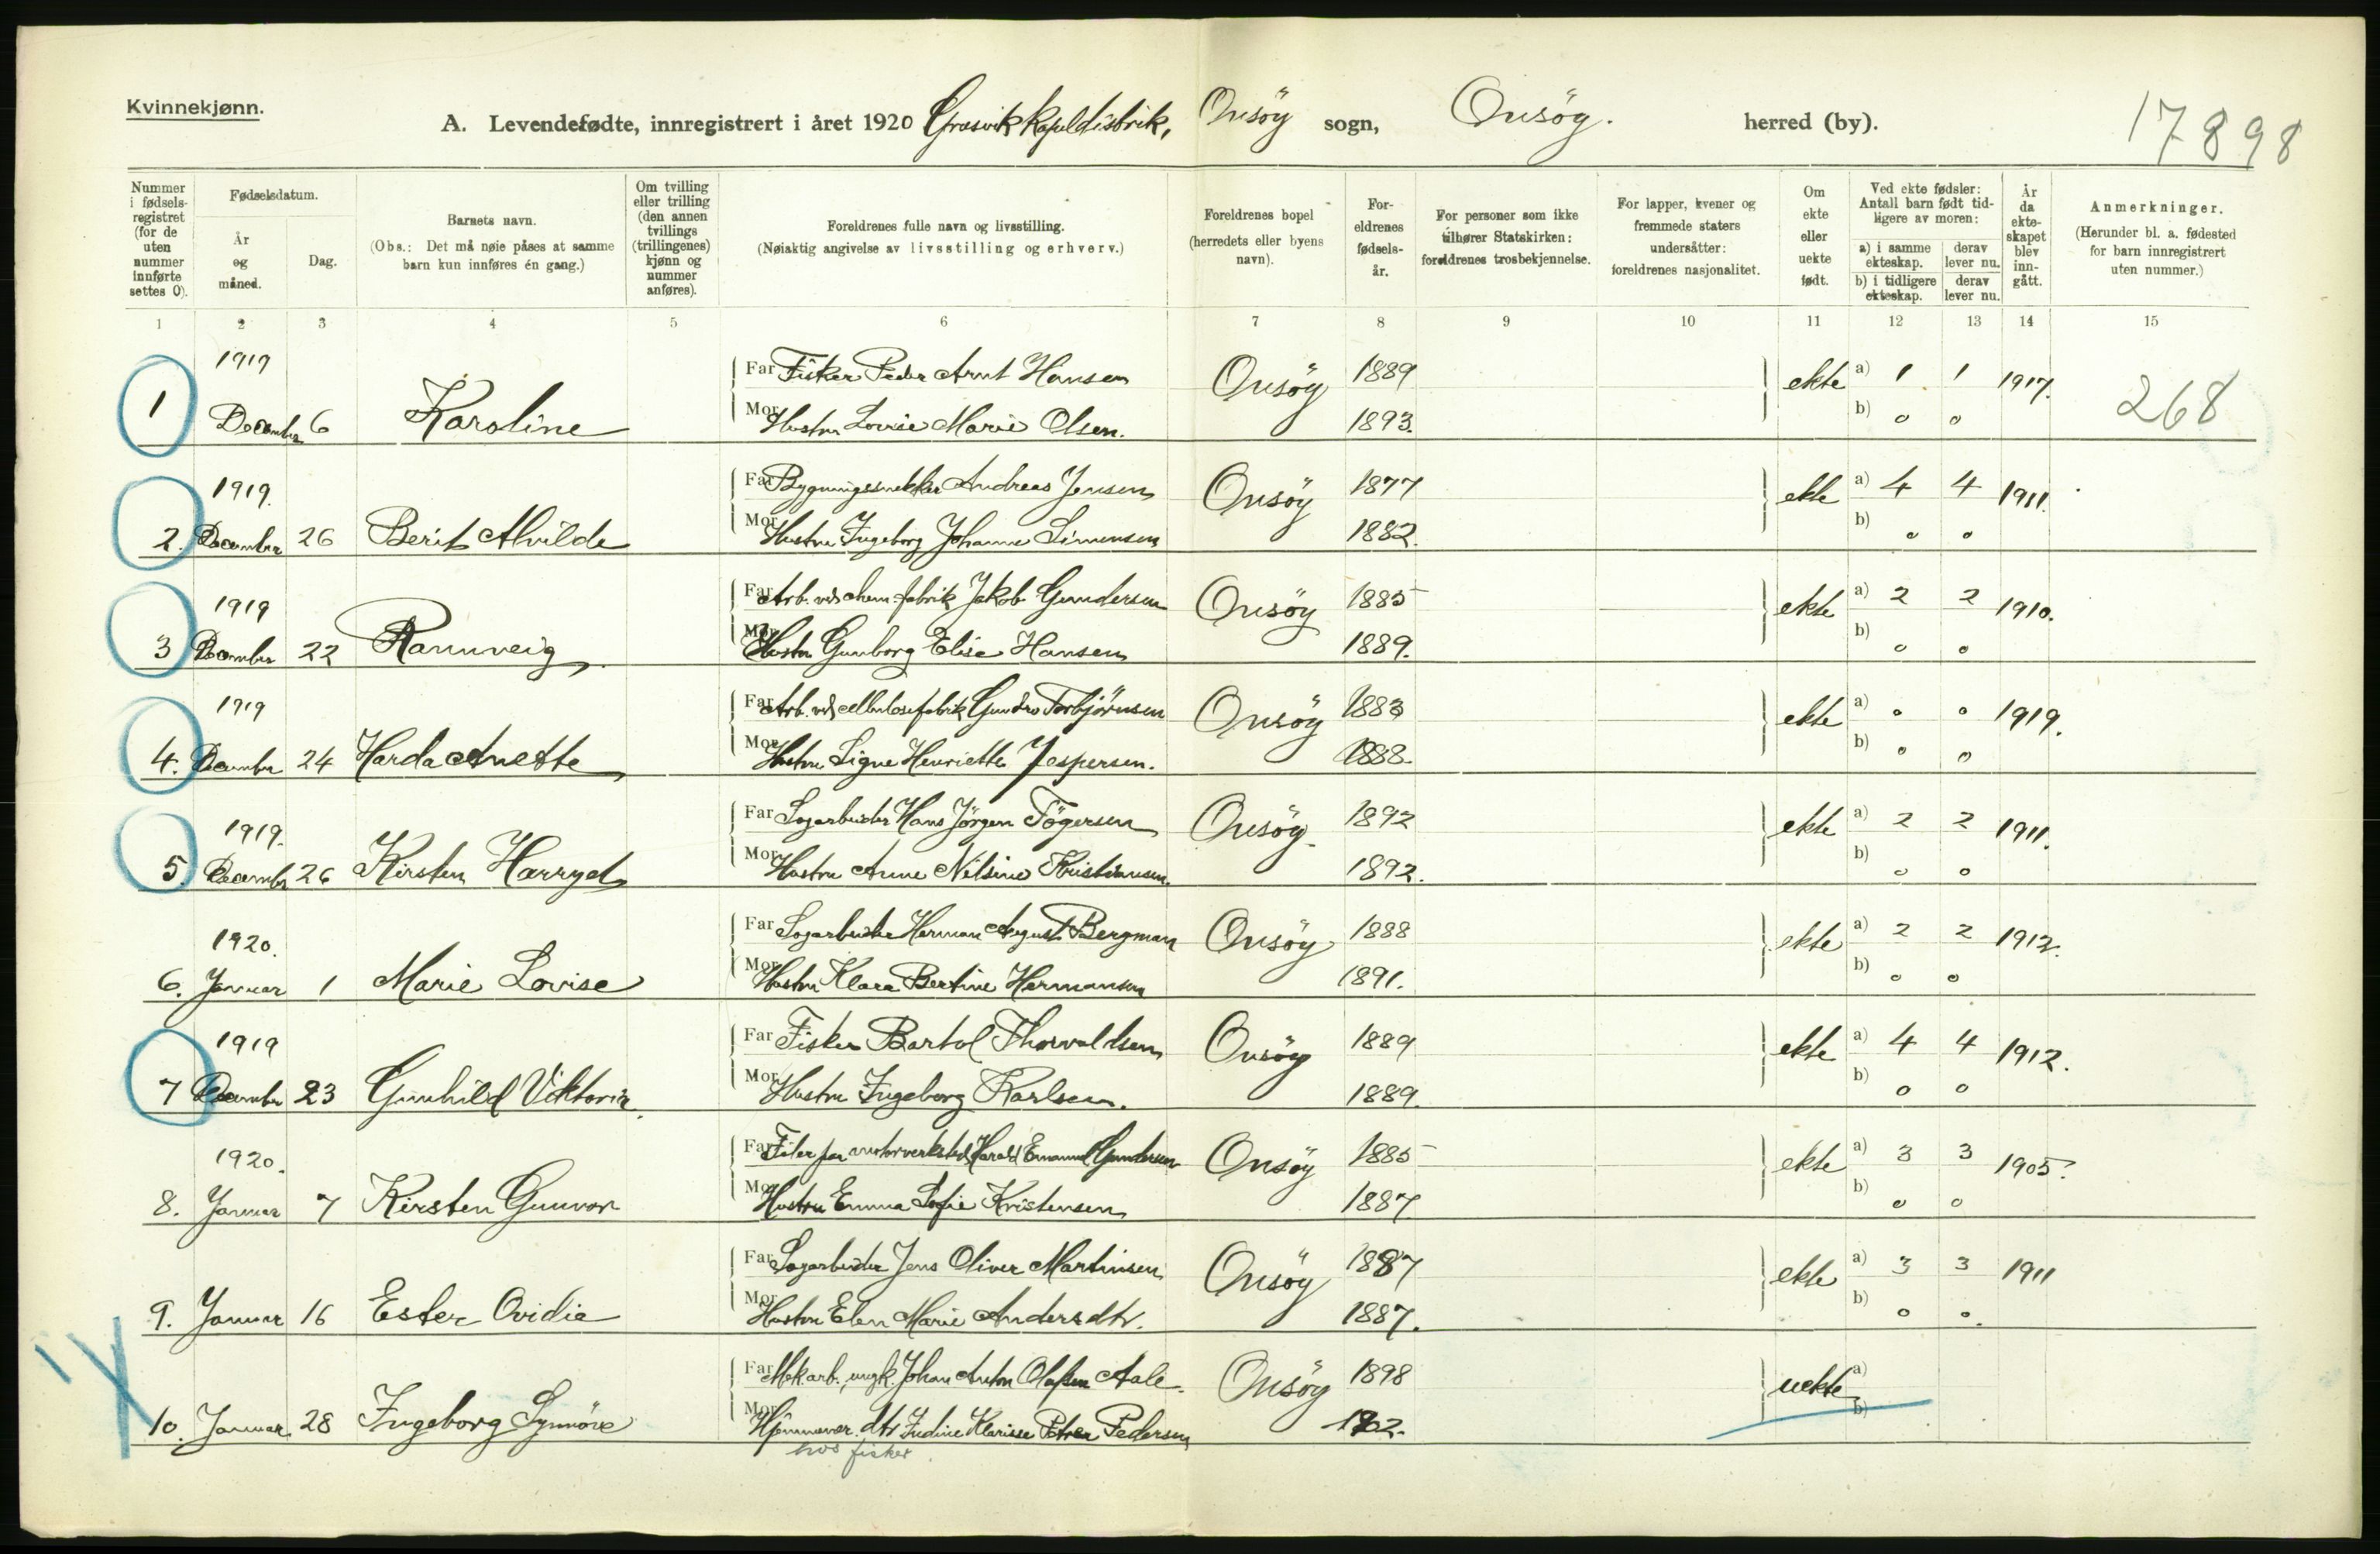 Kvinnekjønn.
A. Levendefødte, innregistrert i året 1920 Græsvik kapeldistrik, Onsöy sogn, Onsöy. herred (by).
17898
Nummer i fødsels-registret (for de uten nummer innførte settes 0).
Fødselsdatum.
År og måned.
Dag.
Barnets navn.
(Obs.: Det må nøie påses at samme barn kun innføres én gang.)
Om tvilling eller trilling (den annen tvillings (trillingenes) kjønn og nummer anføres).
Foreldrenes fulle navn og livsstilling.
(Nøiaktig angivelse av livsstilling og erhverv.)
Foreldrenes bopel (herredets eller byens navn).
For-eldrenes fødsels-år.
For personer som ikke tilhører Statskirken: foreldrenes trosbekjennelse.
For lapper, kvener og fremmede staters undersåtter: foreldrenes nasjonalitet.
Om ekte eller uekte født.
Ved ekte fødsler: Antall barn født tid-ligere av moren:
a) i samme ekteskap.
derav lever nu.
b) i tidligere ekteskap.
derav lever nu.
År da ekte-skapet blev inn-gått.
Anmerkninger.
(Herunder bl. a. fødested for barn innregistrert uten nummer.)
1 2 3 4 5 6 7 8 9 10 11 12 13 14 15
1919 Far Fisker Peder Arnt Hansen Onsöy 1889 ekte a) 1 1 1917.
1 December 6 Karoline Mor Hustru Lovise Marie Olsen. 1893. b) 0 0 268
1919. Far Bygningssnekker Andreas Jensen Onsöy 1877 ekte a) 4 4 1911.
2. December 26 Berit Alvilde Mor Hustru Ingeborg Johanne Simensen 1882. b) 0 0
1919 Far Arb. ved chem. fabrik Jakob Gundersen Onsöy 1885 ekte a) 2 2 1910.
3 December 22 Rannveig Mor Hustru Gunborg Elise Hansen 1889. b) 0 0
1919 Far Arb. ved cellulosefabrik Torbjörnsen Onsöy 1883 ekte a) 0 0 1919.
4. December 24 Harda Anette Mor Hustru Signe Henriette Jespersen. 1888. b) 0 0
1919. Far Sagarbeider Hans Jörgen Tögersen Onsöy 1892 ekte a) 2 2 1911.
5. December 26 Kirsten Harryet Mor Hustru Anne Nilsine Kristiansen. 1892. b) 0 0
1920. Far Sagarbeider Herman August Bergman Onsöy 1888 ekte a) 2 2 1912.
6. Januar 1 Marie Lovise Mor Hustru Klara Bertine Hermansen 1891. b) 0 0
1919 Far Fisker Bartol Thorvaldsen Onsöy 1889 ekte a) 4 4 1912.
7 December 23 Gunhild Viktoria. Mor Hustru Ingeborg Karlsen. 1889. b) 0 0
1920. Far Filer paa motorverksted Harald Emanuel Gundersen Onsöy 1885 ekte a) 3 3 1905?
8. Januar 7 Kirsten Gunvor Mor Hustru Emma Sofie Kristensen 1887 b) 0 0
Far Sagarbeider Jens Oliver Martinsen Onsöy 1887 ekte a) 3 3 1911
9. Januar 16 Ester Ovidia Mor Hustru Elen Marie Andersdtr. 1887. b) 0 0.
Far Mek arb., ungk. Johan Anton Olafsen Aale. Onsöy 1898 uekte a)
10. Januar 28 Ingeborg Synnöve Mor Hjemmevær. dtr Indine Klarisse Petrea Pedersen 1902. b)
hos fisker